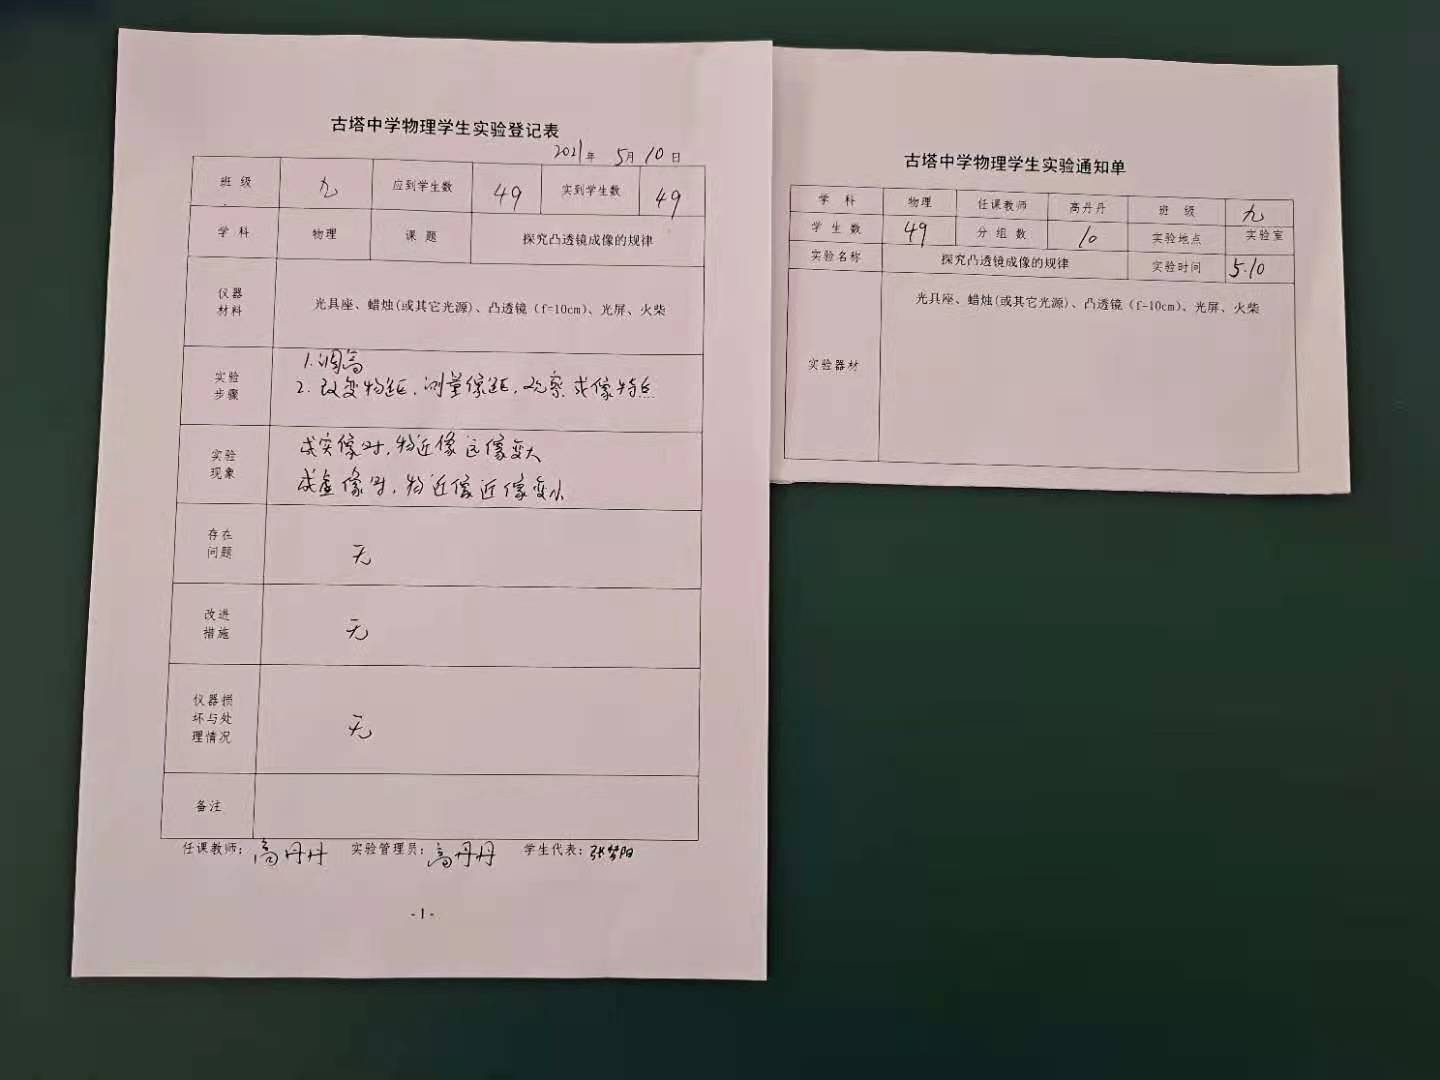 古塔中学物理学生实验登记表
2021年 5月 10日
班 级 九 应到学生数 49 实到学生数 49
学 科 物理 课 题 探究凸透镜成像的规律
仪器
材料
光具座、蜡烛(或其它光源)、凸透镜（f=10cm）、光屏、火柴
实验
步骤
1.调高
2.改变物距，测量像距，观察成像特点
实验
现象
成实像时，物近像远像变大
成虚像时，物近像近像变小
存在
问题
无
改进
措施
无
仪器损
坏与处
理情况
无
备注
任课教师：高丹丹 实验管理员：高丹丹 学生代表：张梦阳
- 1 -
古塔中学物理学生实验通知单
学 科 物理 任课教师 高丹丹 班 级 九
学 生 数 49 分 组 数 10 实验地点 实验室
实验名称 探究凸透镜成像的规律 实验时间 5.10
实验器材
光具座、蜡烛(或其它光源)、凸透镜（f-10cm）、光屏、火柴